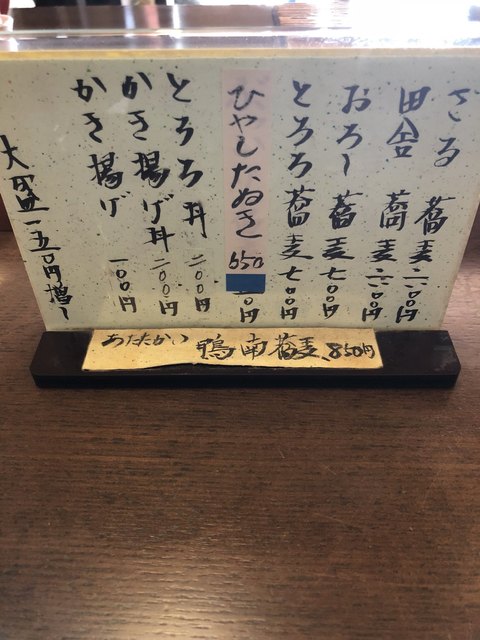 ざる蕎麦六〇〇円
田舎蕎麦六〇〇円
おろし蕎麦七〇〇円
とろろ蕎麦七〇〇円
ひやしたぬき650円
とろろ丼二〇〇円
かき揚げ丼二〇〇円
かき揚げ一〇〇円
大盛一五〇円増し
あたたかい鴨南蕎麦850円